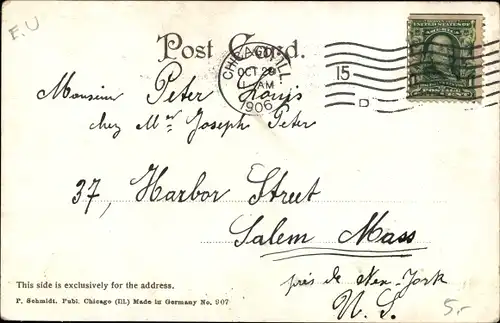 E.U
Post Card.
CHICAGO, ILL.
OCT 29
AM
1906
15
D
UNITED STATES OF AMERICA
Monsieur Peter Louis
chez Mr Joseph Peter
37, Harbor Street
Salem Mass
près de New-York
U. S.
This side is exclusively for the address.
P. Schmidt. Publ. Chicago (Ill.) Made in Germany No. 907
5.-